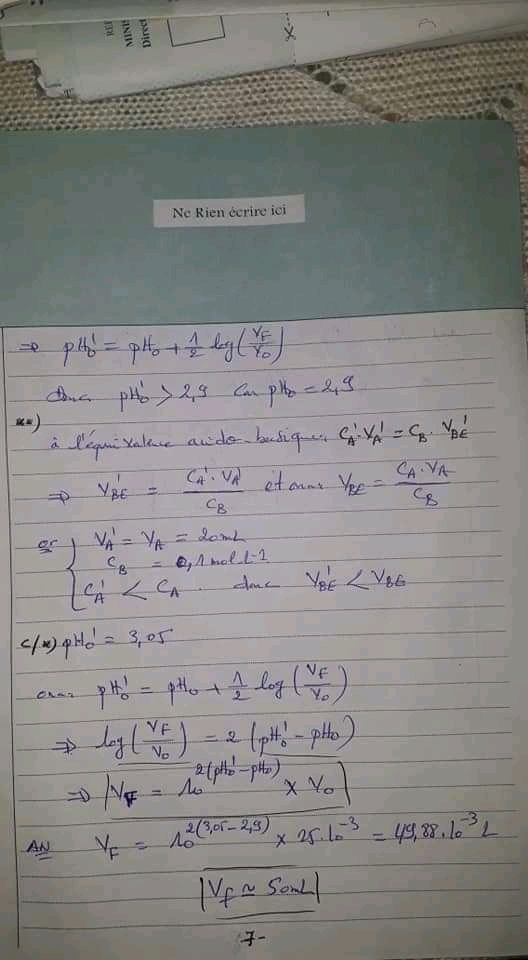 REP
MINI
Direct
Ne Rien écrire ici
⇒ pH₀' = pH₀ + 1/2 log(V_F/V₀)
donc pH₀' > 2,9 car pH₀ = 2,9
**)
à l'équivalence acido-basique, C_A'·V_A' = C_B · V_BE'
⇒ V_BE' = C_A'·V_A'/C_B et on a V_BE = C_A·V_A/C_B
or { V_A' = V_A = 20mL
C_B = 0,1 mol·L-1
C_A' < C_A · donc V_BE' < V_BE
c/*) pH₀' = 3,05
on a pH₀' = pH₀ + 1/2 log(V_F/V₀)
⇒ log(V_F/V₀) = 2 (pH₀' - pH₀)
⇒ |V_F = 10^2(pH₀'-pH₀) × V₀|
AN V_F = 10^2(3,05-2,9) × 25.10^-3 = 49,88.10^-3 L
|V_f ≃ 50mL|
-7-